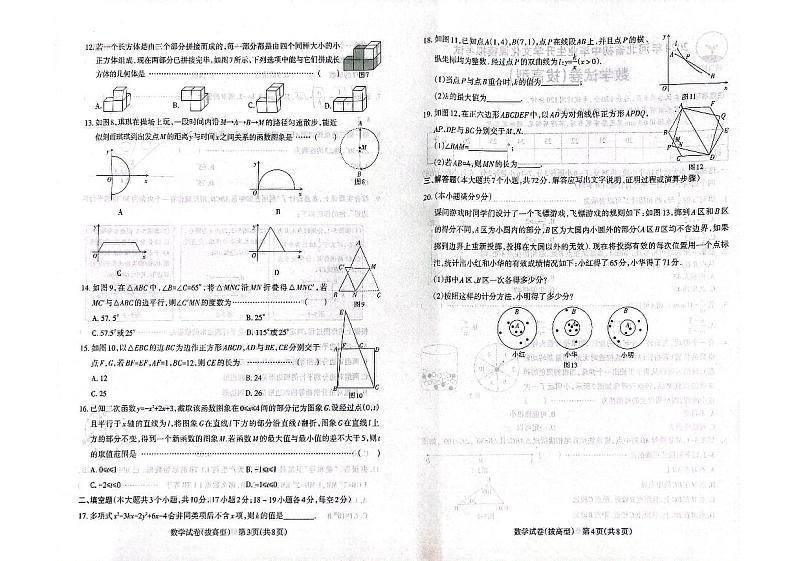 12.若一个长方体是由三个部分拼接而成的,每一部分都是由四个同样大小的小
正方体组成,现在两部分已拼接完毕,如图7所示,下列选项中能与它们拼成长
方体的几何体是 ( )
图7
A. B. C. D.
13.如图8,琪琪在操场上玩,一段时间内沿M→A→B→M的路径匀速散步,能近
似刻画琪琪到出发点M的距离y与时间x之间关系的函数图象是 ( )
图8
A B
C D
14.如图9,在△ABC中,∠B=∠C=65°,将△MNC沿MN折叠得△MNC′,若
MC′与△ABC的边平行,则∠C′MN的度数为 ( )
图9
A. 57.5° B. 25°
C. 57.5°或25° D. 115°或25°
15.如图10,以△EBC的边BC为边作正方形ABCD,AD与BE,CE分别交于
点F,G,若BF=EF,AF=1,BC=12,则CE的长为 ( )
A. 12 B. 24
C. 25 D. 26
图10
16.已知二次函数y=-x²+2x+3,截取该函数图象在0≤x≤4间的部分记为图象G,设经过点(0,t)
且平行于x轴的直线为l,将图象G在直线l下方的部分沿直线l翻折,图象G在直线l上
方的部分不变,得到一个新函数的图象M,若函数M的最大值与最小值的差不大于5,则t
的取值范围是 ( )
A. 0≤t≤1 B. -1≤t≤1
C. -2≤t≤0 D. -1≤t≤0
二、填空题(本大题共3个小题,共10分.17小题2分;18~19小题各4分,每空2分)
17.多项式x²-3kx-2y²+6x-4合并同类项后不含x项,则k的值是
数学试卷(拔高型) 第3页(共8页)
18.如图11,已知点A(1,4),B(7,1),点P在线段AB上,并且点P的横、
纵坐标均为整数,经过点P的双曲线为l:y=k/x(x>0).
(1)当点P与点B重合时,k的值为
(2)k的最大值为
图11
19.如图12,在正六边形ABCDEF中,以AD为对角线作正方形APDQ,
AP、DP与BC分别交于M、N.
(1)∠BAM= °;
(2)若AB=4,则MN的长为
图12
三、解答题(本大题共7个小题,共72分.解答应写出文字说明、证明过程或演算步骤)
20.(本小题满分9分)
课间游戏时同学们设计了一个飞镖游戏,飞镖游戏的规则如下:如图13,掷到A区和B区
的得分不同,A区为小圆内的部分,B区为大圆内小圆外的部分(A区B区均不含边界,如果
掷到边界上重新投掷,投掷在大圆以外的无效).现在将投掷有效的每次位置用一个点标
注,统计出小红和小华的有效成绩情况如下:小红得了65分,小华得了71分.
(1)掷中A区、B区一次各得多少分?
(2)按照这样的计分方法,小明得了多少分?
小红 小华 小明
图13
数学试卷(拔高型) 第4页(共8页)